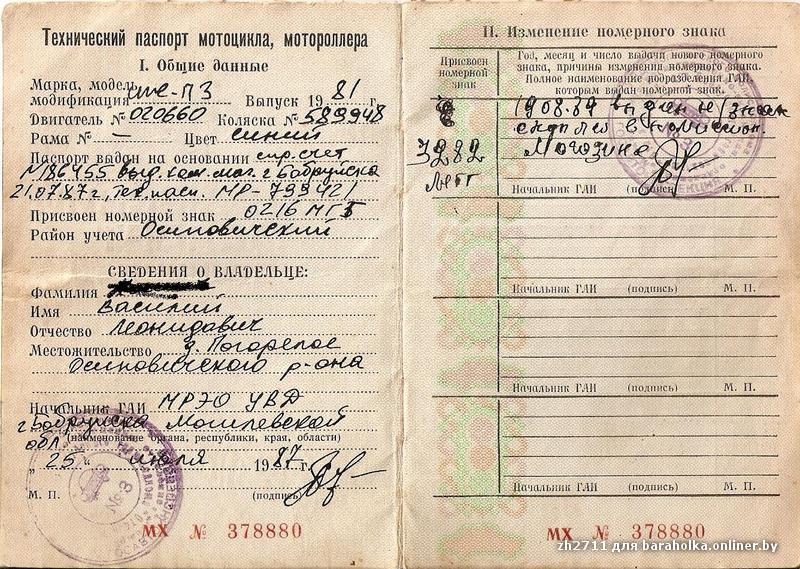 Технический паспорт мотоцикла, мотороллера
I. Общие данные
Марка, модель,
модификация иж-П3 Выпуск 1981 г.
Двигатель № 020660 Коляска № 589948
Рама № — Цвет синий
Паспорт выдан на основании спр. счет
М186455 выд. ком. маг. г Бобруйска
21.07.87 г, Тех. пасп. МР-799421
Присвоен номерной знак 0216 МГБ
Район учета Осиповичский
СВЕДЕНИЯ О ВЛАДЕЛЬЦЕ:
Фамилия
Имя Василий
Отчество Леонидович
Местожительство д. Погорелое
Осиповичского р-она
Начальник ГАИ МРЭО УВД
г Бобруйска Могилевской
обл.
(наименование органа, республики, края, области)
„ 25 “ июля 1987 г.
М. П. (подпись)
МХ № 378880
II. Изменение номерного знака
Присвоен номерной знак
Год, месяц и число выдачи нового номерного
знака, причины изменения номерного знака.
Полное наименование подразделения ГАИ,
которым выдан номерной знак.
19.08.89 выдан н/знак
3282
Магазине
Начальник ГАИ (подпись) М. П.
Начальник ГАИ (подпись) М. П.
Начальник ГАИ (подпись) М. П.
Начальник ГАИ (подпись) М. П.
МХ № 378880
zh2711 для baraholka.onliner.by